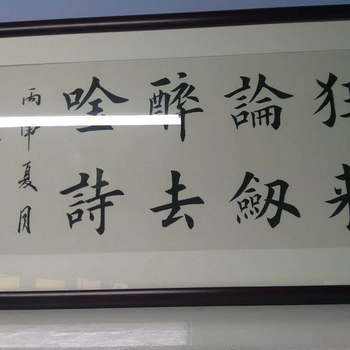 狂来
論劒
醉去
唫詩
丙申夏月